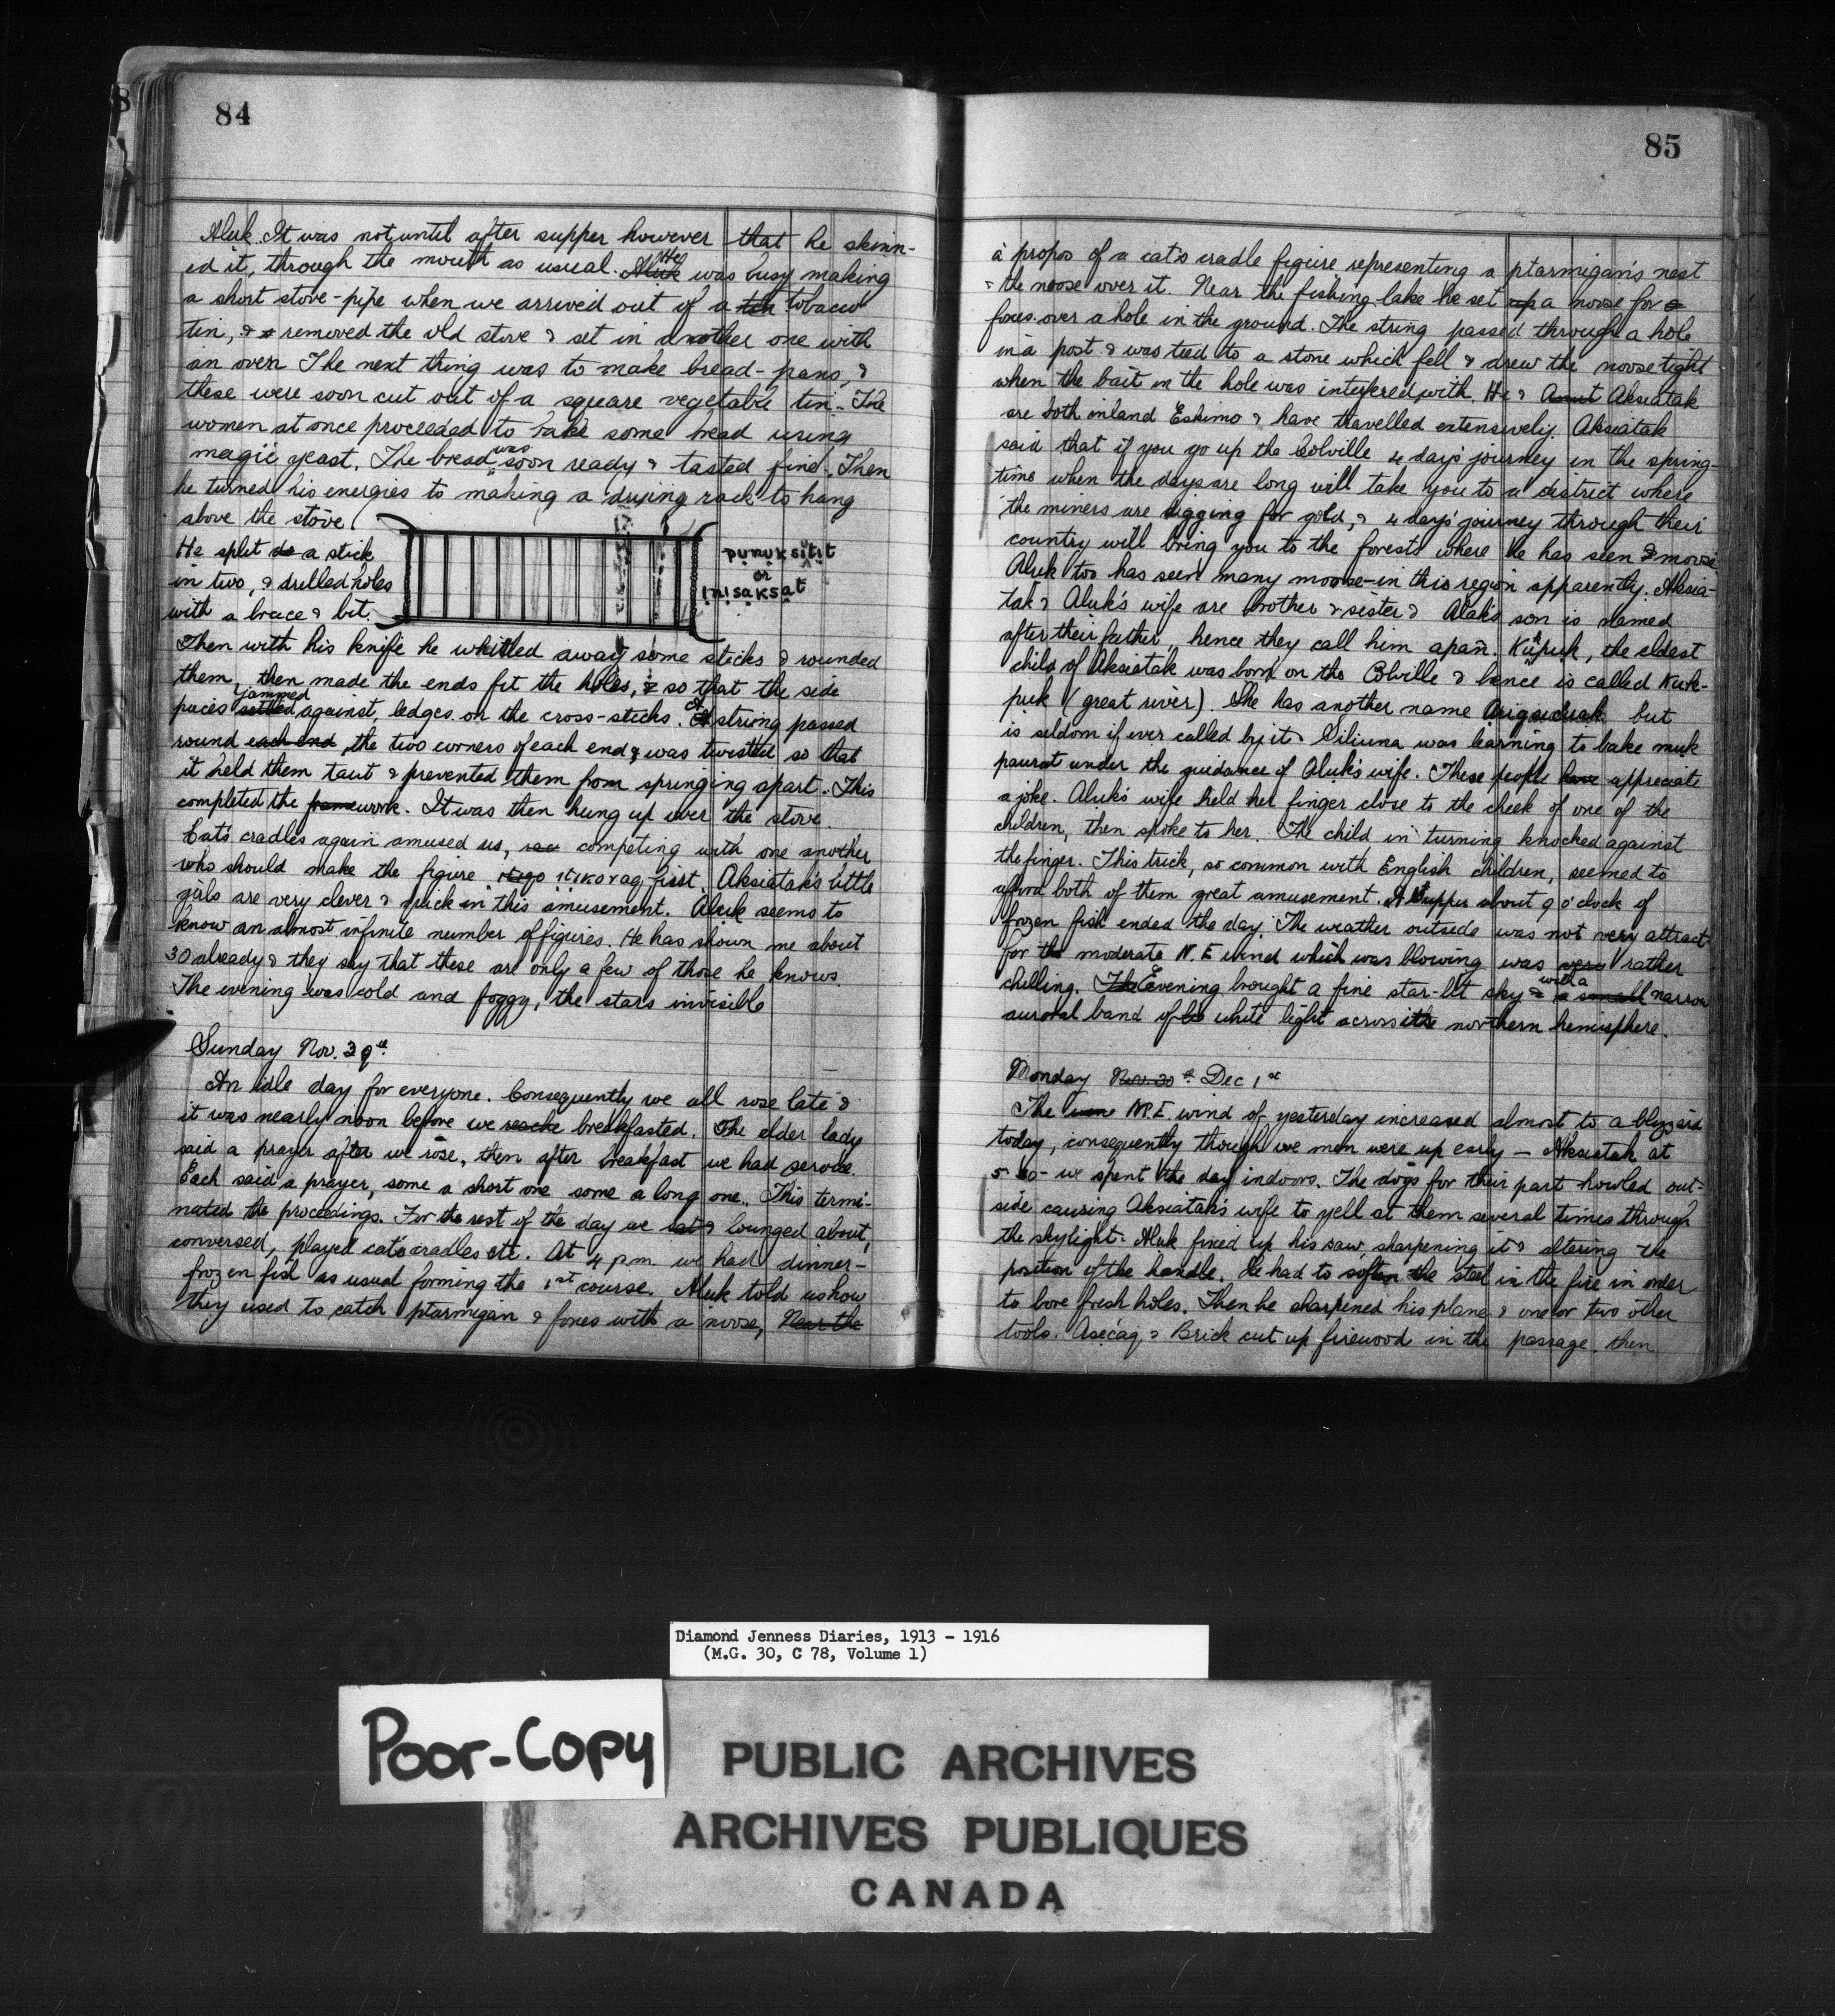 84
Aluk. It was not until after supper however that he skinn-
ed it, through the mouth as usual. Aluk He was busy making
a short stove-pipe when we arrived out of a tin tobacco
tin, & removed the old stove & set in another one with
an oven. The next thing was to make bread-pans, &
these were soon cut out of a square vegetable tin. The
women at once proceeded to bake some bread using
magic yeast. The bread was soon ready & tasted fine. Then
he turned his energies to making a drying rack to hang
above the stove.
He split a stick
in two, & drilled holes
with a brace & bit.
punuksitit
or
inisaksat
Then with his knife he whittled away some sticks & rounded
them, then made the ends fit the holes, & so that the side
pieces settled jammed against, ledges on the cross-sticks. A string passed
round each end the two corners of each end & was twisted so that
it held them taut & prevented them from springing apart. This
completed the framework. It was then hung up over the stove.
Cat's cradles again amused us, competing with one another
who should make the figure first. Aksiatak's little
girls are very clever & quick in this amusement. Aluk seems to
know an almost infinite number of figures. He has shown me about
30 already & they say that these are only a few of those he knows.
The evening was cold and foggy, the stars invisible
Sunday Nov. 30th
An idle day for everyone. Consequently we all rose late &
it was nearly noon before we breakfasted. The elder lady
said a prayer after we rose, then after breakfast we had service.
Each said a prayer, some a short one some a long one. This termi-
nated the proceedings. For the rest of the day we sat & lounged about,
conversed, played cat's cradles etc. At 4 p.m. we had dinner –
frozen fish as usual forming the 1st course. Aluk told us how
they used to catch ptarmigan & foxes with a noose, Near the
85
à propos of a cat's cradle figure representing a ptarmigan's nest
& the noose over it. Near the fishing lake he set up a noose for
foxes over a hole in the ground. The string passed through a hole
in a post & was tied to a stone which fell & drew the noose tight
when the bait in the hole was interfered with. He & Aksiatak
are both inland Eskimo & have travelled extensively. Aksiatak
said that if you go up the Colville 4 days' journey in the spring-
time when the days are long will take you to a district where
the miners are digging for gold, & 4 days' journey through their
country will bring you to the forests where he has seen moose
Aluk too has seen many moose in this region apparently. Aksia-
tak & Aluk's wife are brother & sister & Aluk's son is named
after their father, hence they call him apañ. Kukpuk, the eldest
child of Aksiatak was born on the Colville & hence is called Kuk-
puk (great river). She has another name but
is seldom if ever called by it. Siliuna was learning to bake muk
paurat under the guidance of Aluk's wife. These people have appreciate
a joke. Aluk's wife held her finger close to the cheek of one of the
children, then spoke to her. The child in turning knocked against
the finger. This trick, so common with English children, seemed to
afford both of them great amusement. A Supper about 9 o'clock of
frozen fish ended the day. The weather outside was not very attract
for the moderate N.E wind which was blowing was very rather
chilling. The Evening brought a fine star-lit sky & with a a small narrow
auroral band of white light across the northern hemisphere.
Monday Nov. 30th Dec 1st
The N.E. wind of yesterday increased almost to a blizzard
today, consequently though we men were up early – Aksiatak at
5.30 – we spent the day indoors. The dogs for their part howled out-
side causing Aksiatak's wife to yell at them several times through
the skylight. Aluk fixed up his saw, sharpening it & altering the
position of the handle. He had to soften the steel in the fire in order
to bore fresh holes. Then he sharpened his plane & one or two other
tools. Asecaq & Brick cut up firewood in the passage. then
Diamond Jenness Diaries, 1913 - 1916
(M.G. 30, C 78, Volume 1)
Poor-Copy
PUBLIC ARCHIVES
ARCHIVES PUBLIQUES
CANADA